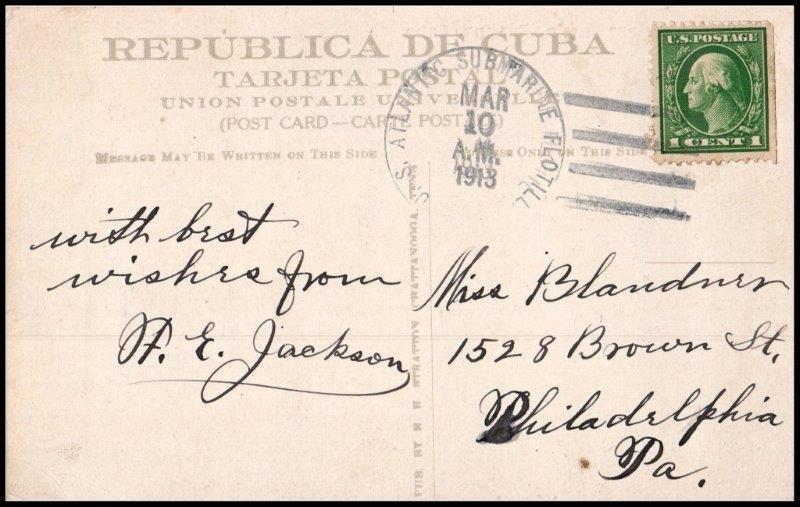 REPÚBLICA DE CUBA
TARJETA POSTAL
UNION POSTALE UNIVERSELLE
(POST CARD—CARTE POSTALE)
MESSAGE MAY BE WRITTEN ON THIS SIDE
ONLY ON THIS SIDE
U.S. ATLANTIC SUBMARINE FLOTILL
MAR
10
A.M.
1913
U.S. POSTAGE
1 CENT 1
with best
wishes from
E. Jackson
PUB. BY W. H. STRATTON CHATTANOOGA, TENN.
Miss Blandner
1528 Brown St.
Philadelphia
Pa.